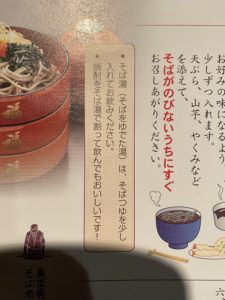 お好みの味になるよう
少しずつ入れます。
天ぷら、山芋、やくみなど
を添えて、
そばがのびないうちにすぐ
お召しあがりください。
そば湯（そばをゆでた湯）は、そばつゆを少し
入れてお飲みください。
焼酎をそば湯で割って飲んでもおいしいです！